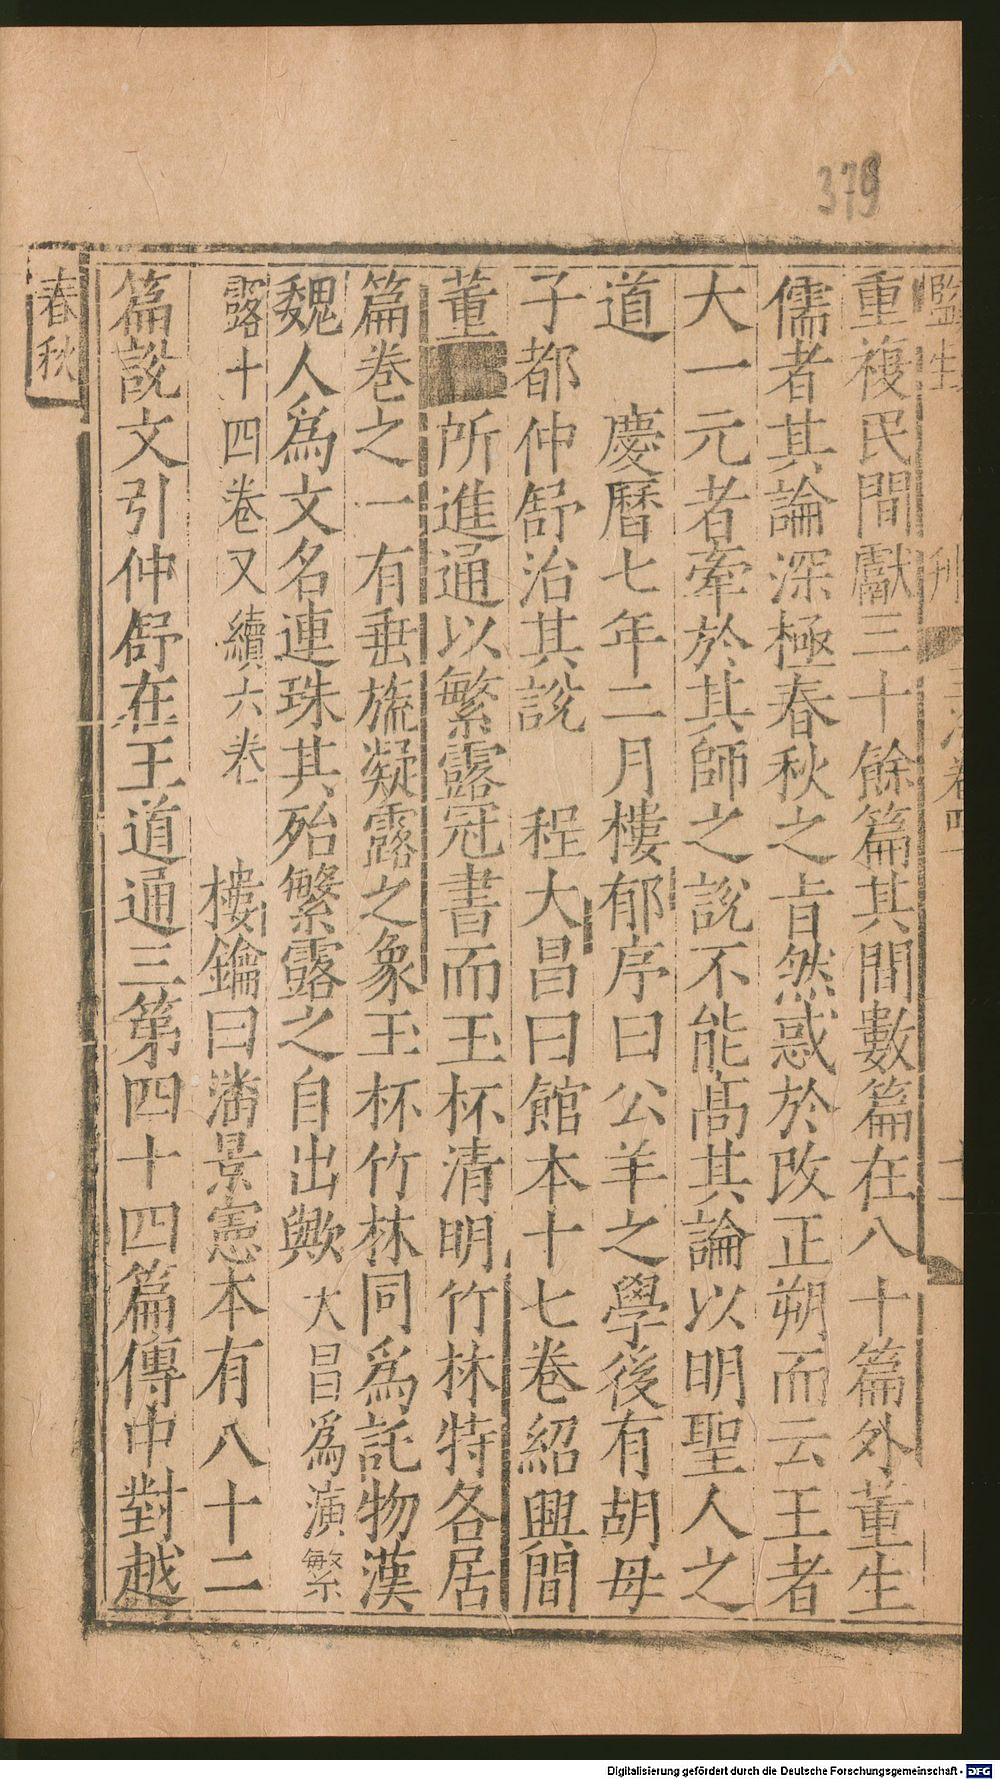 379
監生
刊
重複民間獻三十餘篇其間數篇在八十篇外董生
儒者其論深極春秋之旨然惑於改正朔而云王者
大一元者牽於其師之說不能高其論以明聖人之
道　慶曆七年二月樓郁序曰公羊之學後有胡母
子都仲舒治其說　程大昌曰館本十七卷紹興間
董　所進通以繁露冠書而玉杯清明竹林特各居
篇卷之一有垂旒凝露之象玉杯竹林同爲託物漢
魏人爲文名連珠其殆繁露之自出歟大昌爲演繁
露十四卷又續六卷　樓鑰曰潘景憲本有八十二
篇說文引仲舒在王道通三第四十四篇傳中對越
春秋
Digitalisierung gefördert durch die Deutsche Forschungsgemeinschaft - DFG